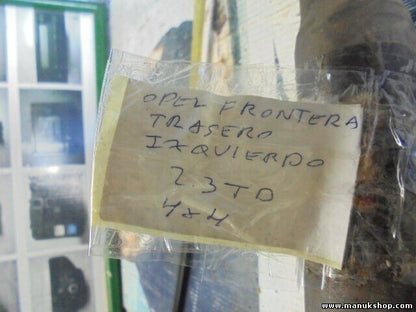 OPEL FRONTERA
TRASERO
IZQUIERDO
2.3 TD
4x4
www.manukshop.com